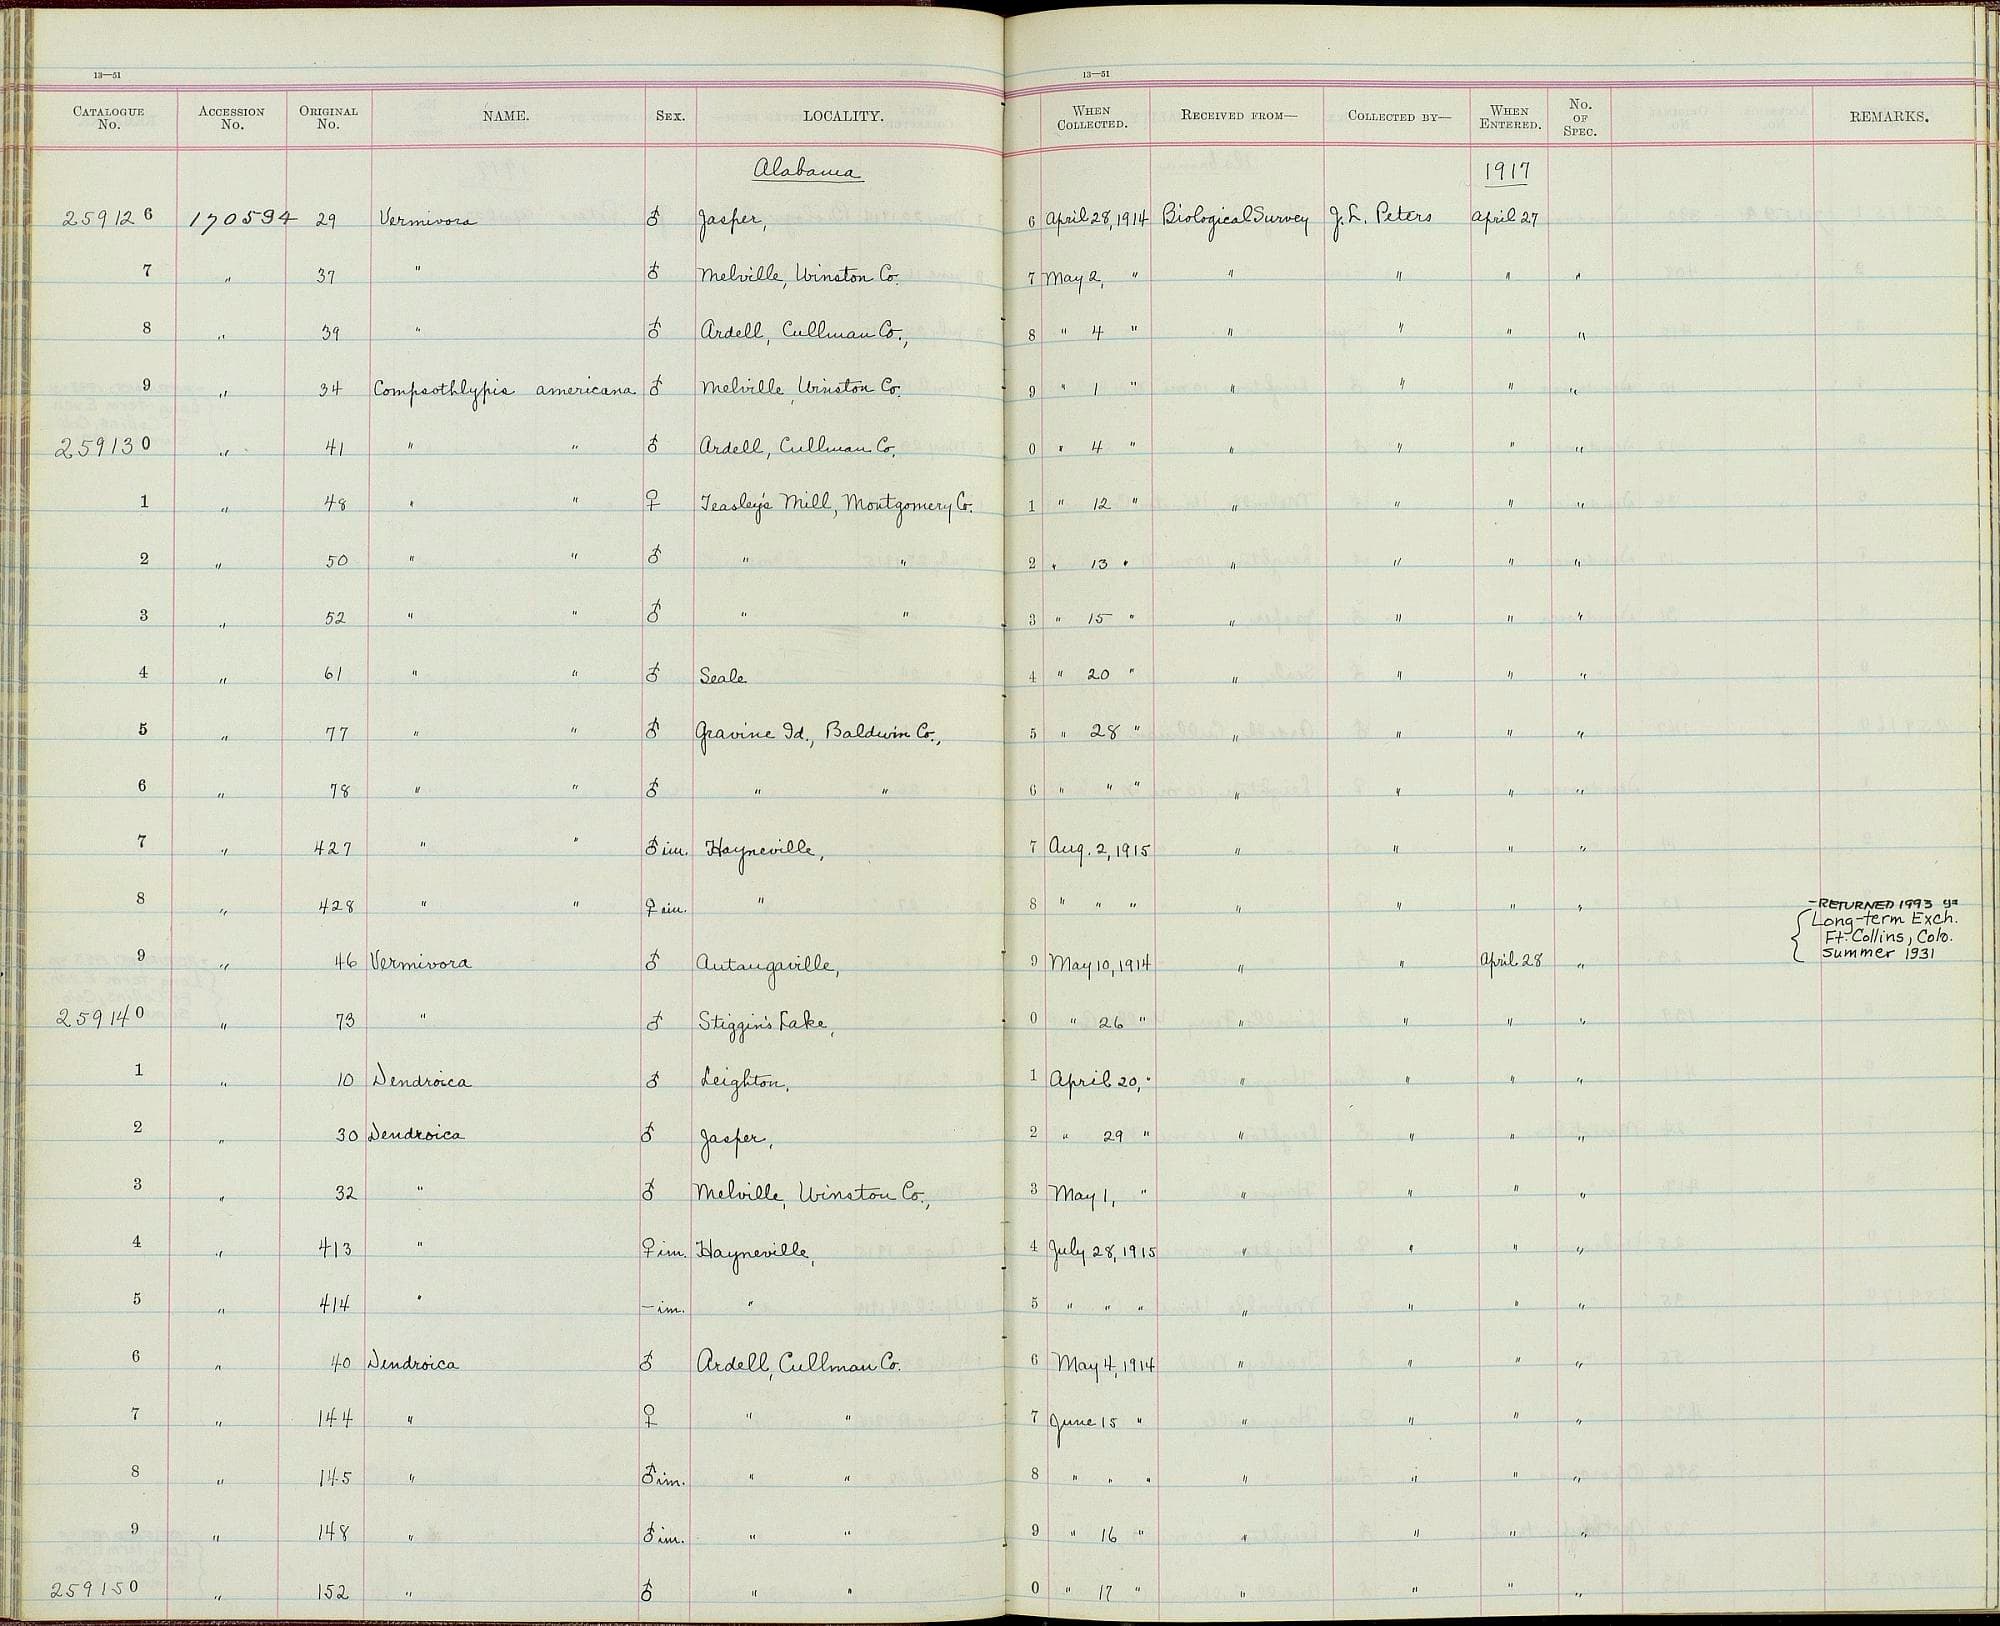 13—51
13—51
CATALOGUE No. ACCESSION No. ORIGINAL No. NAME. SEX. LOCALITY. WHEN COLLECTED. RECEIVED FROM— COLLECTED BY— WHEN ENTERED. No. OF SPEC. REMARKS.
Alabama 1917
259126 170594 29 Vermivora ♂ Jasper, 6 April 28, 1914 Biological Survey J. L. Peters April 27
7 " 37 " ♂ Melville, Winston Co. 7 May 2, " " " " "
8 " 39 " ♂ Ardell, Cullman Co., 8 " 4 " " " " "
9 " 34 Compsothlypis americana ♂ Melville, Winston Co. 9 " 1 " " " " "
259130 " 41 " " ♂ Ardell, Cullman Co. 0 " 4 " " " " "
1 " 48 " " ♀ Teasley's Mill, Montgomery Co. 1 " 12 " " " " "
2 " 50 " " ♂ " " 2 " 13 " " " " "
3 " 52 " " ♂ " " 3 " 15 " " " " "
4 " 61 " " ♂ Seale 4 " 20 " " " " "
5 " 77 " " ♂ Gravine Id., Baldwin Co., 5 " 28 " " " " "
6 " 78 " " ♂ " " 6 " " " " " " "
7 " 427 " " ♂ im. Hayneville, 7 Aug. 2, 1915 " " " "
8 " 428 " " ♀ im. " 8 " " " " " " " -RETURNED 1993
Long-term Exch.
Ft. Collins, Colo.
9 " 46 Vermivora ♂ Autaugaville, 9 May 10, 1914 " " April 28 " summer 1931
259140 " 73 " ♂ Stiggin's Lake, 0 " 26 " " " " "
1 " 10 Dendroica ♂ Leighton, 1 April 20, " " " " "
2 " 30 Dendroica ♂ Jasper, 2 " 29 " " " " "
3 " 32 " ♂ Melville, Winston Co., 3 May 1, " " " " "
4 " 413 " ♀ im. Hayneville, 4 July 28, 1915 " " " "
5 " 414 " — im. " 5 " " " " " " "
6 " 40 Dendroica ♂ Ardell, Cullman Co. 6 May 4, 1914 " " " "
7 " 144 " ♀ " " 7 June 15 " " " " "
8 " 145 " ♂ im. " " 8 " " " " " " "
9 " 148 " ♂ im. " " 9 " 16 " " " " "
259150 " 152 " ♂ " " 0 " 17 " " " " "